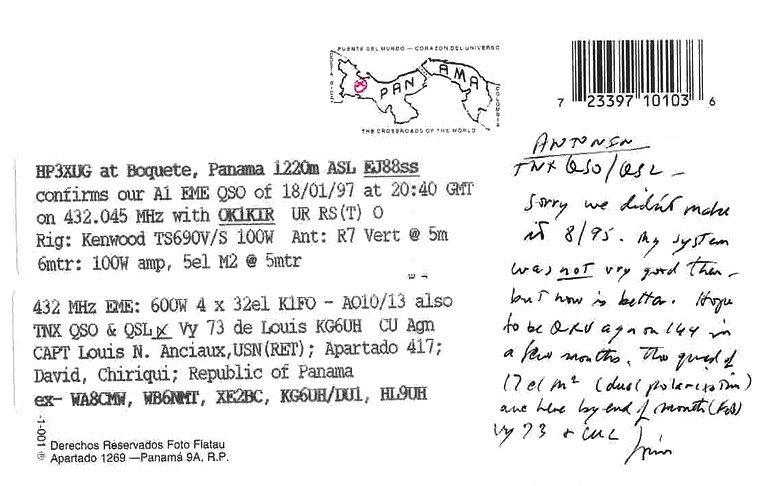 PUENTE DEL MUNDO — CORAZON DEL UNIVERSO
COSTA RICA
PANAMA
COLOMBIA
THE CROSSROADS OF THE WORLD
7 23397 10103 6
HP3XUG at Boquete, Panama 1220m ASL EJ88ss
confirms our A1 EME QSO of 18/01/97 at 20:40 GMT
on 432.045 MHz with OK1KIR UR RS(T) O
Rig: Kenwood TS690V/S 100W Ant: R7 Vert @ 5m
6mtr: 100W amp, 5el M2 @ 5mtr
432 MHz EME: 600W 4 x 32el K1FO - AO10/13 also
TNX QSO & QSL Vy 73 de Louis KG6UH CU Agn
CAPT Louis N. Anciaux,USN(RET); Apartado 417;
David, Chiriqui; Republic of Panama
ex- WA8CMW, WB6NMT, XE2BC, KG6UH/DU1, HL9UH
-1-001
© Derechos Réservados Foto Flatau
Apartado 1269 —Panamá 9A, R.P.
ANTONIN
TNX QSO/QSL -
Sorry we didn't make
it 8/95. My system
was not very good then -
but now is better. Hope
to be QRV agn on 144 in
a few months. The quad of
17el M² (dual polarization)
are here by end of month (Feb)
Vy 73 + CUL